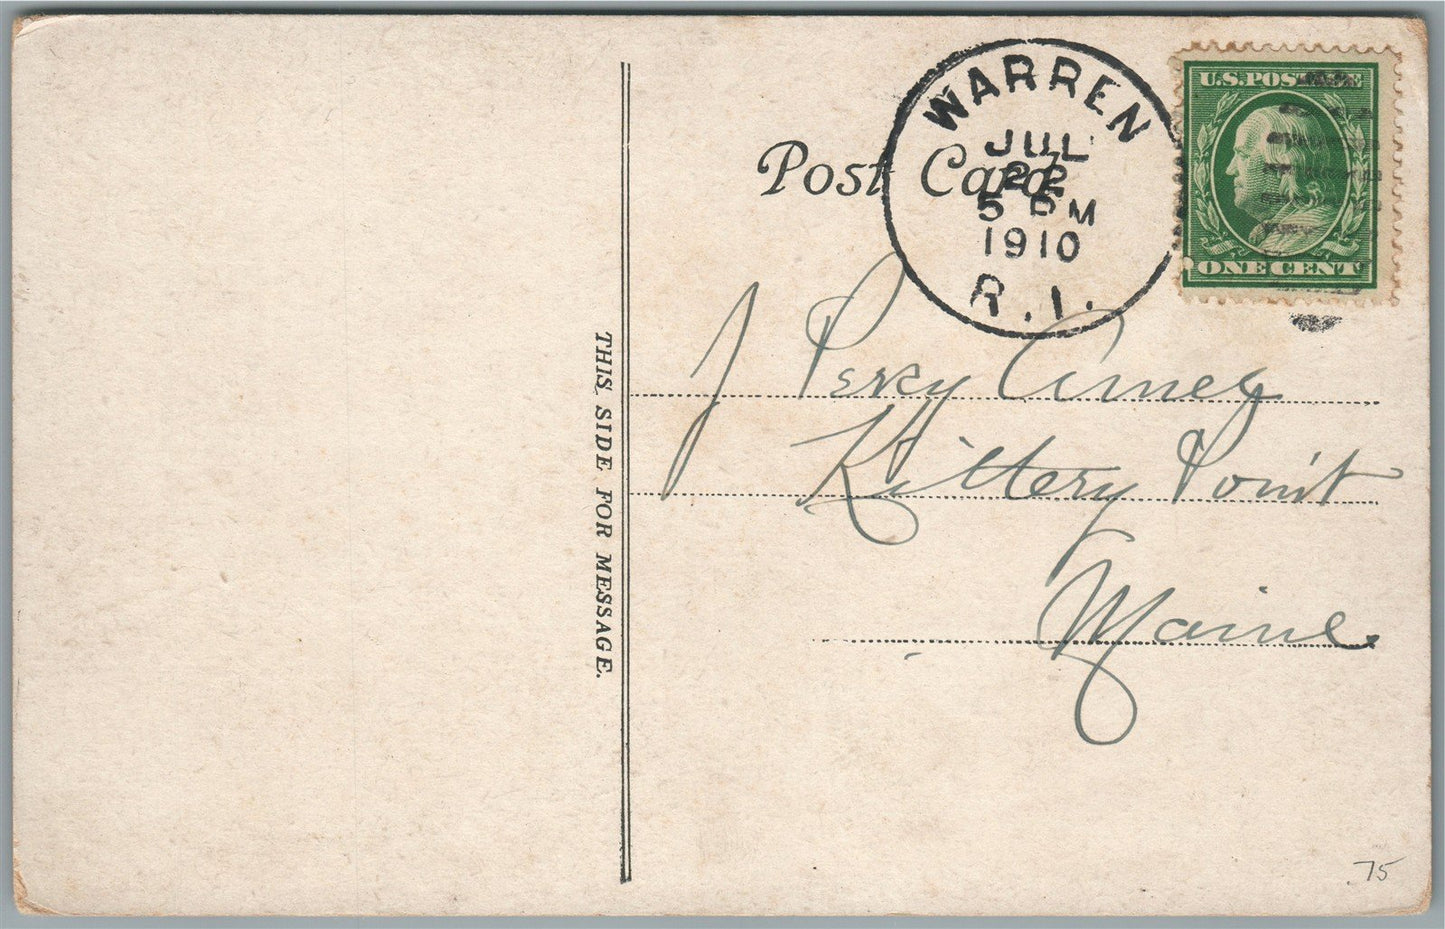 WARREN
JUL
22
5 PM
1910
R.I.
U.S. POSTAGE
ONE CENT
Post Card
THIS SIDE FOR MESSAGE.
J Percy Amey
Kittery Point
Maine
75